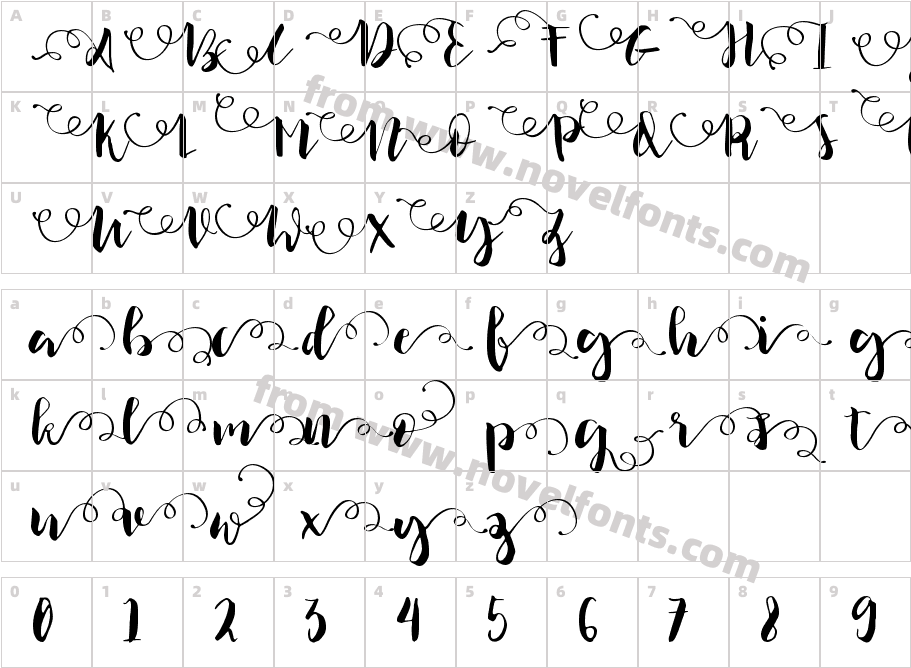 A B C D E F G H I J
A B C D E F G H I
K L M N O P Q R S T
K L M N O P Q R S
U V W X Y Z
U V W X Y Z
from www.novelfonts.com
a b c d e f g h i g
a b c d e f g h i g
k l m n o p q r s t
k l m n o p q r s t
u v w x y z
u v w x y z
from www.novelfonts.com
0 1 2 3 4 5 6 7 8 9
0 1 2 3 4 5 6 7 8 9